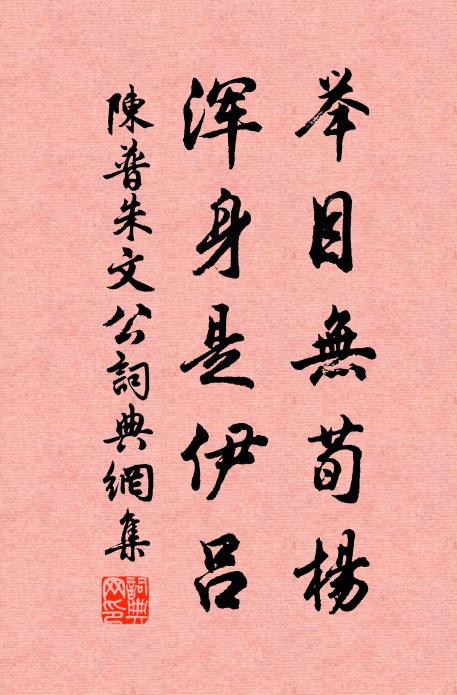 举目無荀楊
浑身是伊吕
陳普朱文公詞典網集
詞典网印